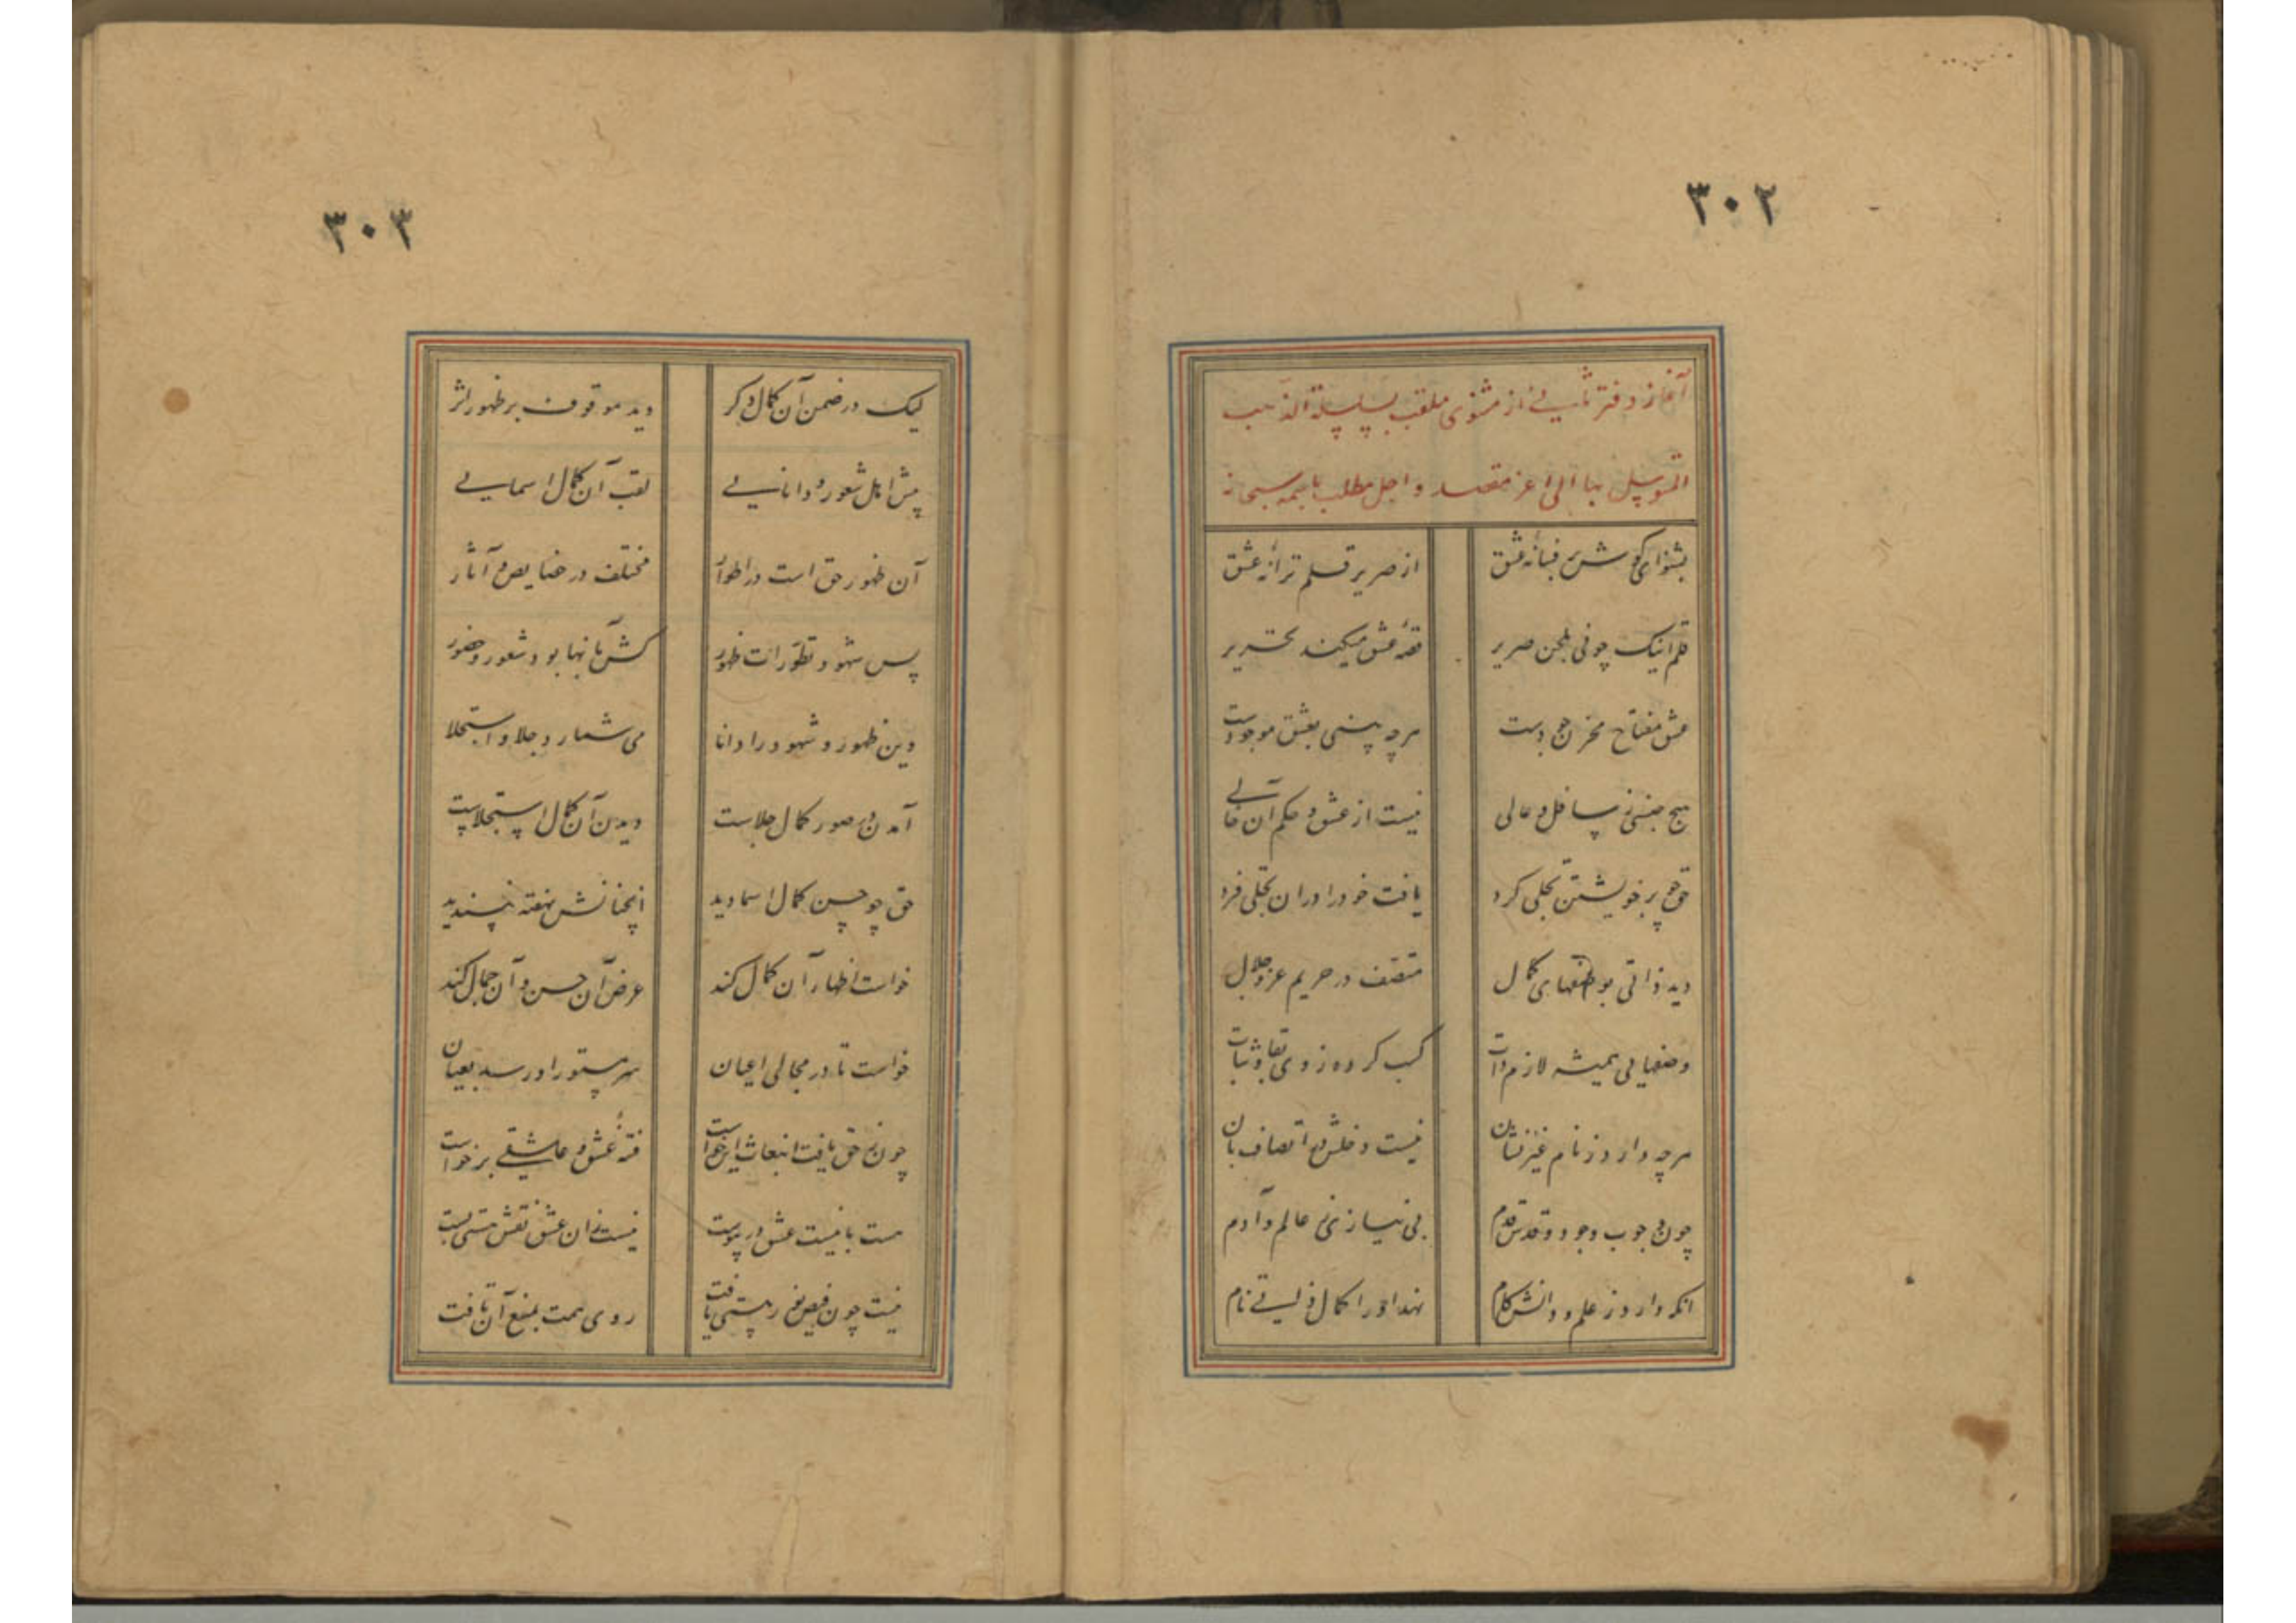 ۳۰۲
آغاز دفتر ثانی از مثنوی ملقب بسلسلة الذهب
المتوسل بها الی اعز مقصد و اجل مطلب باسمه سبحانه
بشنو ای گوش بر فسانه عشق از صریر قلم ترانه عشق
قلم اینک چو نی بلحن صریر قصه عشق میکند تحریر
عشق مفتاح مخزن جودست هرچه بینی بعشق موجودست
هیچ جنبنی ز سافل و عالی نیست از عشق و حکم آن خالی
حق چو بر خویشتن تجلی کرد یافت خود را در آن تجلی فرد
دید ذاتی بوصفهای کمال متصف در حریم عز و جلال
وصفهایی همیشه لازم ذات کسب کرده ز وی بقا و ثبات
هرچه دارد ز نام غیر نشان نیست دخلش در اتصاف بآن
چون وجوب وجود و قدس قدم بی نیازی ز عالم و آدم
آنکه دارد ز علم و دانش کام نهد او را کمال ذاتی نام
۳۰۳
لیک در ضمن آن کمال دگر دید موقوف بر ظهور اثر
پیش اهل شعور و دانایی لقب آن کمال اسمایی
آن ظهور حق است در اطوار مختلف در خصایص و آثار
پس شهود تطورات ظهور کش بآنها بود شعور و حضور
وین ظهور و شهود را دانا می شمارد جلا و استجلا
آمدن در صور کمال جلاست دیدن آن کمال استجلاست
حق چو حسن کمال اسما دید آنچنانش نهفته نپسندید
خواست اظهار آن کمال کند عرض آن حسن و آن جمال کند
خواست تا در مجالی اعیان سر مستور او رسد بعیان
چون ز حق یافت انبعاث این خواست فتنه عشق و عاشقی برخواست
هست با نیست عشق در پیوست نیست زان عشق نقش هستی بست
نیست چون فیض نور هستی یافت روی همت بمنبع آن تافت